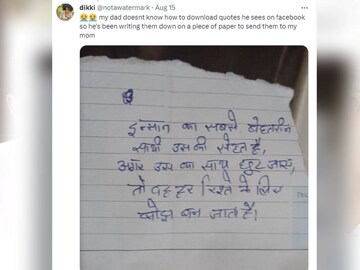 dikki @notawatermark · Aug 15
😭😭 my dad doesnt know how to download quotes he sees on facebook
so he's been writing them down on a piece of paper to send them to my
mom
इन्सान का सबसे बेहतरीन
साथी उस की सेहत है,
अगर उस का साथ छुट जाए,
तो वह हर रिश्ते के लिए
बोझ बन जाता है।